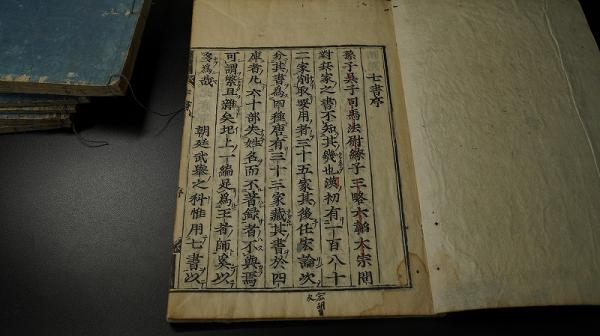 七書序
孫子吳子司馬法尉繚子三略六韜太宗問
對兵家之書不知其幾也漢初有一百八十
二家削取要用者三十五家其後任宏論次
分其書為四種唐有三十三家藏其書於四
庫者凡六十部失姓名而不著錄者不與焉
可謂繁且雜矣圯上一編足為王者師奚以
多為哉 朝廷武舉之科惟用七書以